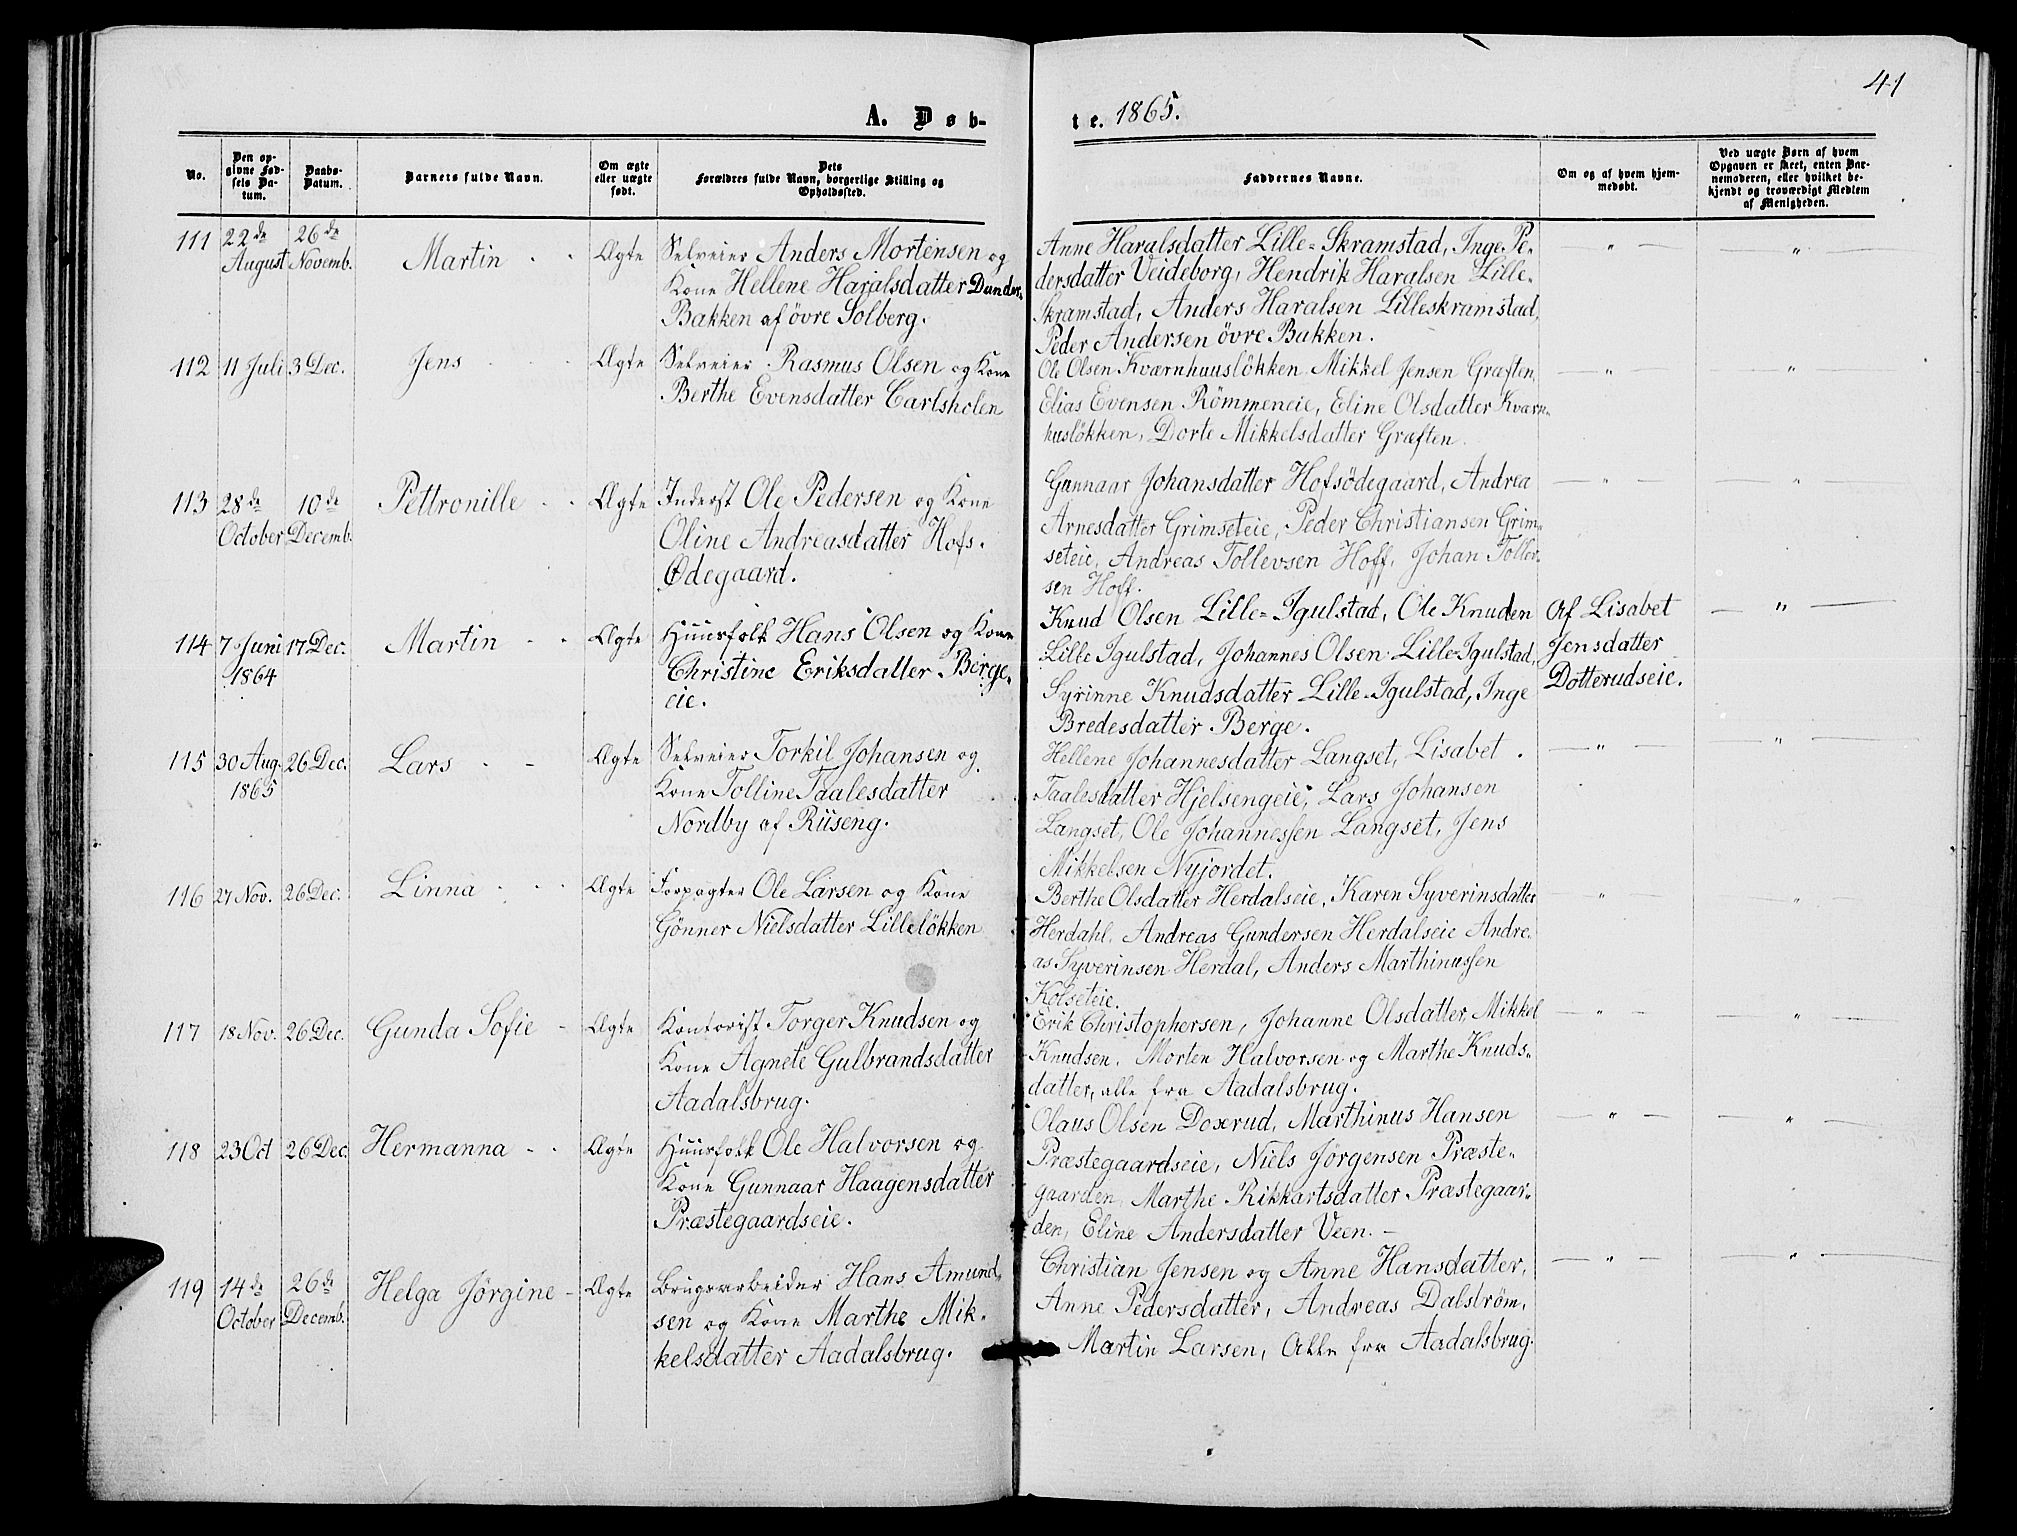 41
A. Døb-
te. 1865.
No.
Den op-
givne Fød-
sels Da-
tum.
Daabs-
Datum.
Barnets fulde Navn.
Om ægte
eller uægte
født.
Dets
Forældres fulde Navn, borgerlige Stilling og
Opholdssted.
Faddernes Navne.
Om og af hvem hjem-
medøbt.
Ved uægte Børn af hvem
Opgaven er skeet, enten Bar-
nemoderen, eller hvilket be-
kjendt og troværdigt Medlem
af Menigheden.
111
22de
August
26de
Novemb.
Martin
Ægte
Selveier Anders Mortensen og
Kone Hellene Haralsdatter Dunder-
Bakken af övre Solberg.
Anne Haralsdatter Lille-Skramstad, Inge Pe-
dersdatter Veideborg, Hendrik Haralsen Lille-
Skramstad, Anders Haralsen Lilleskramstad,
Peder Andersen övre Bakken.
— " —
— " —
112
11 Juli
3 Dec.
Jens
Ægte
Selveier Rasmus Olsen og Kone
Berthe Evensdatter Carlsholen
Ole Olsen Kværnhuuslökken, Mikkel Jensen Græften,
Elias Evensen Römmeneie, Eline Olsdatter Kværn-
huslökken, Dorte Mikkelsdatter Græften.
— " —
— " —
113
28de
October
10de
Decemb.
Pettronille
Ægte
Inderst Ole Pedersen og Kone
Oline Andreasdatter Hofs-
Ödegaard.
Gunnaar Johansdatter Hofsödegaard, Andrea
Arnesdatter Grimseteie, Peder Christiansen Grim-
seteie, Andreas Tollevsen Hoff, Johan Tollev-
sen Hoff.
— " —
— " —
114
7 Juni
1864
17 Dec.
Martin
Ægte
Huusfolk Hans Olsen og Kone
Christine Eriksdatter Berge-
eie.
Knud Olsen Lille-Igulstad, Ole Knuden
Lille Igulstad, Johannes Olsen Lille-Igulstad,
Syrinne Knudsdatter Lille-Igulstad, Inge
Bredesdatter Berge.
Af Lisabet
Jensdatter
Dotterudseie.
— " —
115
30 Aug.
1865
26 Dec.
Lars
Ægte
Selveier Torkil Johansen og
Kone Tolline Taalesdatter
Nordby af Riiseng.
Hellene Johannesdatter Langset, Lisabet
Taalesdatter Hjelsengeie, Lars Johansen
Langset, Ole Johannessen Langset, Jens
Mikkelsen Nyjordet.
— " —
— " —
116
27 Nov.
26 Dec.
Linna
Ægte
Forpagter Ole Larsen og Kone
Gönner Nielsdatter Lillelökken
Berthe Olsdatter Herdalseie, Karen Syverinsdatter
Herdahl, Andreas Gundersen Herdalseie Andre-
as Syverinsen Herdal, Anders Marthinussen
Kolseteie.
— " —
— " —
117
18 Nov.
26 Dec.
Gunda Sofie
Ægte
Kontorist Torger Knudsen og
Kone Agnete Gulbrandsdatter
Aadalsbrug.
Erik Christophersen, Johanne Olsdatter, Mikkel
Knudsen, Morten Halvorsen og Marthe Knuds-
datter, alle fra Aadalsbrug.
— " —
— " —
118
23 Oct
26 Dec.
Hermanna
Ægte
Huusfolk Ole Halvorsen og
Kone Gunnaar Haagensdatter
Præstegaardseie.
Olaus Olsen Doxrud, Marthinus Hansen
Præstegaardseie, Niels Jörgensen Præste-
gaarden, Marthe Rikkartsdatter Præstegaar-
den, Eline Andersdatter Veen. –
— " —
— " —
119
14de
October
26de
Decemb.
Helga Jörgine
Ægte
Brugsarbeider Hans Amund-
sen og Kone Marthe Mik-
kelsdatter Aadalsbrug.
Christian Jensen og Anne Hansdatter,
Anne Pedersdatter, Andreas Dalström,
Martin Larsen, Alle fra Aadalsbrug.
— " —
— " —